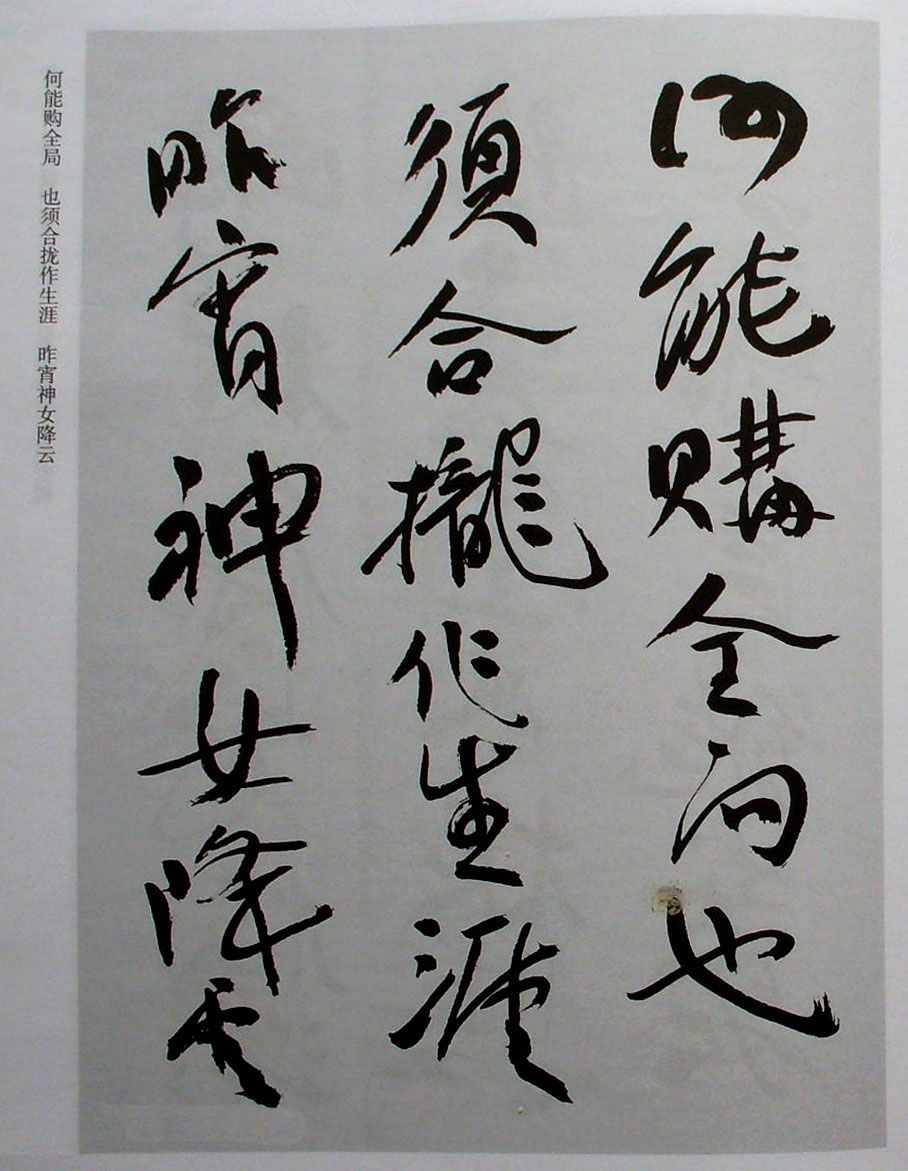 何能購全局也
須合攏作生涯
昨宵神女降云
何能购全局　也须合拢作生涯　昨宵神女降云